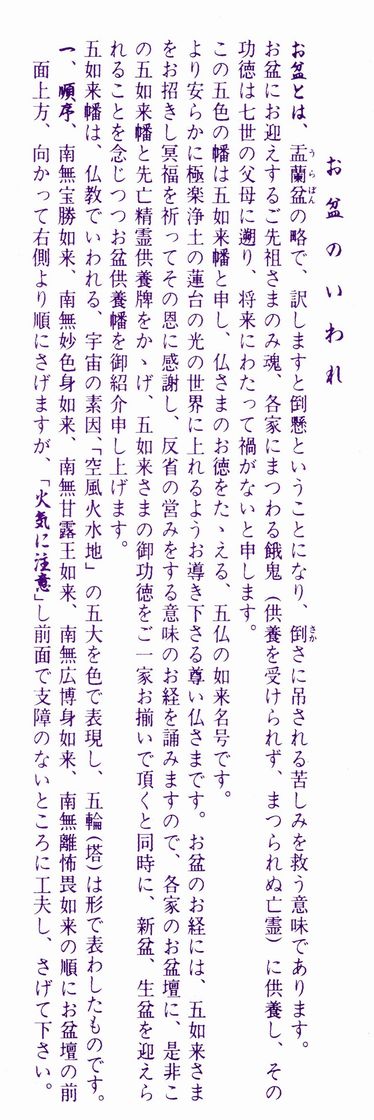 お盆のいわれ
お盆とは、盂蘭盆の略で、訳しますと倒懸ということになり、倒さに吊される苦しみを救う意味であります。
うらぼん
さか
お盆にお迎えするご先祖さまのみ魂、各家にまつわる餓鬼(供養を受けられず、まつられぬ亡霊)に供養し、その
功徳は七世の父母に遡り、将来にわたって禍がないと申します。
この五色の幡は五如来幡と申し、仏さまのお徳をたゝえる、五仏の如来名号です。
より安らかに極楽浄土の蓮台の光の世界に上れるようお導き下さる尊い仏さまです。お盆のお経には、五如来さま
をお招きし冥福を祈ってその恩に感謝し、反省の営みをする意味のお経を誦みますので、各家のお盆壇に、是非こ
の五如来幡と先亡精霊供養牌をかゝげ、五如来さまの御功徳をご一家お揃いで頂くと同時に、新盆、生盆を迎えら
れることを念じつつお盆供養幡を御紹介申し上げます。
五如来幡は、仏教でいわれる、宇宙の素因、「空風火水地」の五大を色で表現し、五輪(塔)は形で表わしたものです。
一、順序、南無宝勝如来、南無妙色身如来、南無甘露王如来、南無広博身如来、南無離怖畏如来の順にお盆壇の前
面上方、向かって右側より順にさげますが、「火気に注意」し前面で支障のないところに工夫し、さげて下さい。